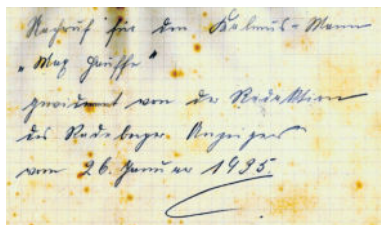 Nachruf für den Kalmus-Mann
"Max Hauffe"
gewidmet von der Redaktion
des Radeberger Anzeigers
vom 26. Januar 1935.